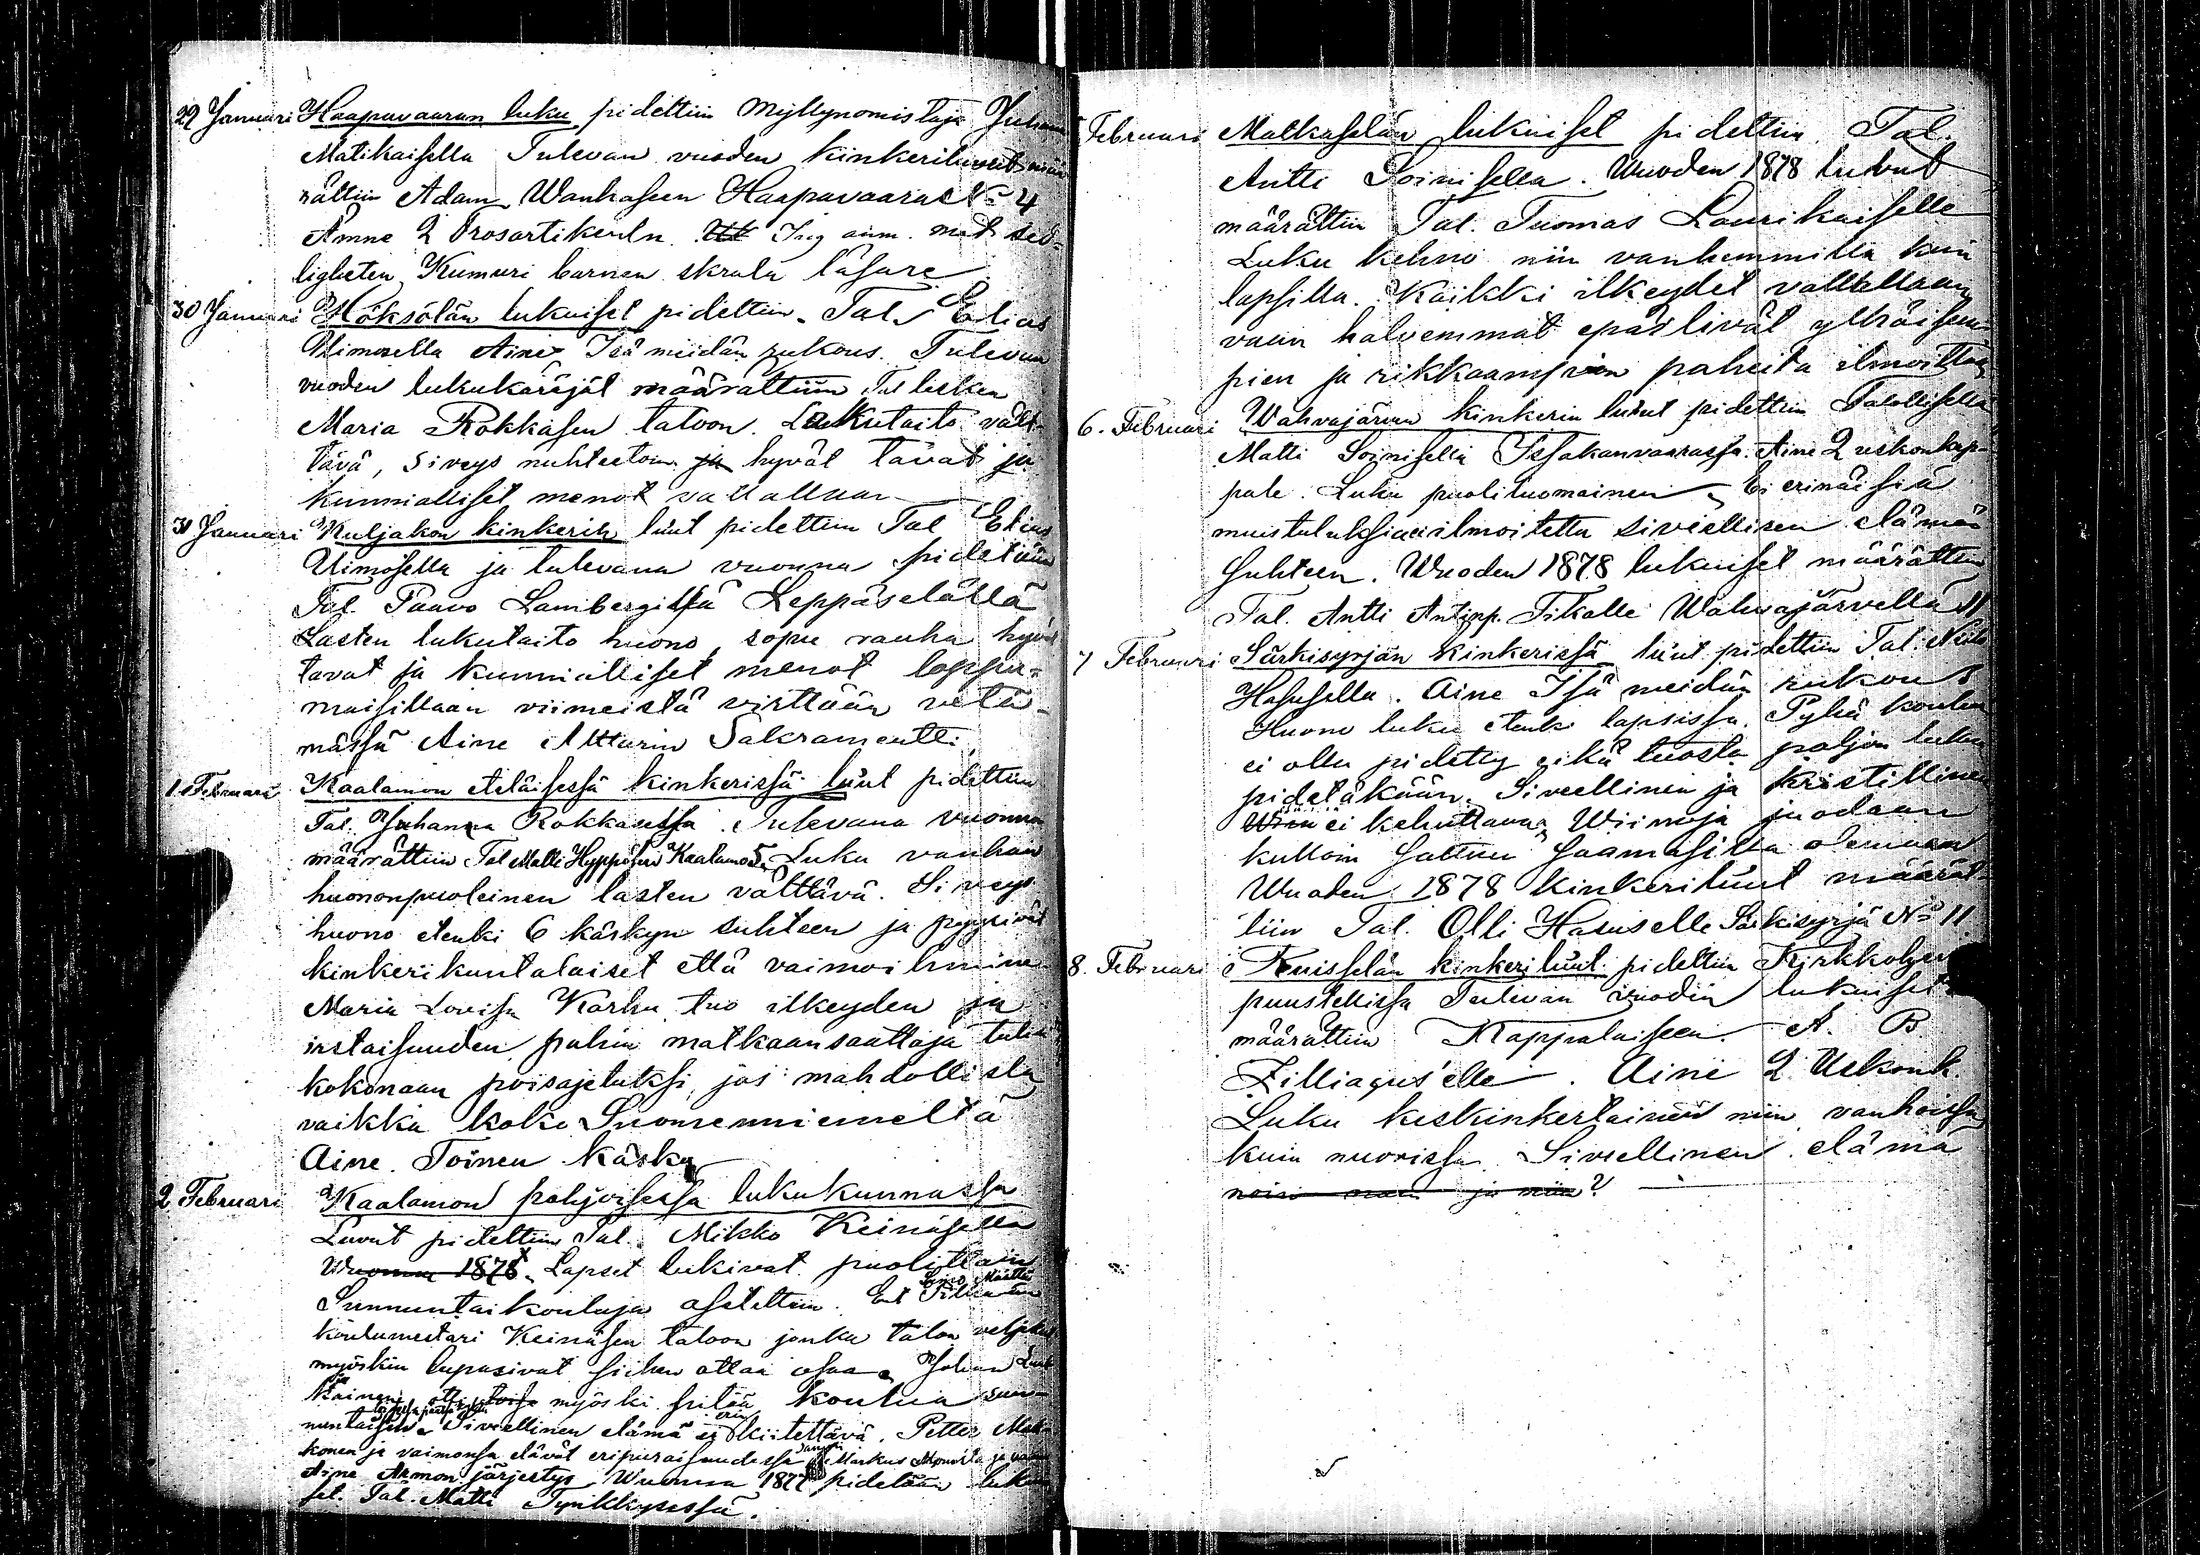 29 Januari Haapavaaran luku pidettiin Myllynomistaja Juhana
Matikaisella Tulevan vuoden kinkeriluvut mää-
rättiin Adam Wanhasen Haapavaara No 4
Ämne 2 Trosartikeln. Ing anm. med sed-
ligheten Kumuri barnen skrala läsare
30 Januari Höksölän lukuiset pidettiin Tal. Elias
Uimosella Aine Isä meidän rukous. Tulevan
vuoden lukukäräjät määrättiin Tal lesken
Maria Rokkasen taloon. Lukutaito vält-
tävä, siveys nuhteeton ja hyvät tavat ja
kunnialliset menot vallallaan
31 Januari Kuljakon kinkerin luut pidettiin Tal Elias
Uimosella ja tulevana vuonna pidetään
Tal. Paavo Lambergilla Leppäselällä
Lasten lukutaito huono, sopu rauha hyvät
tavat ja kunnialliset menot loppu-
maisillaan viimeistä virttään vetä-
mässä Aine Altturin Sakramentti
1. Februari Kaalamon eteläisessä kinkerissä luut pidettiin
Tal. Juhana Rokkasessa. Tulevana vuonna
määrättiin Tal Matti Hyppösen Kaalamo 5. Luku vanhan
huononpuoleinen lasten välttävä. Siveys
huono etenki 6 käskyn suhteen ja pyysivät
kinkerikuntalaiset että vaimoihminen
Maria Lovisa Karhu tuo ilkeyden ja
irstaisuuden pahin matkaansaattaja tulisi
kokonaan poisajetuksi, jos mahdollista
vaikka koko Suomenniemeltä
Aine. Toinen Käsky
2 Februari Kaalamon pohjoisessa lukukunnassa
Luvut pidettiin Tal. Mikko Keinäsellä
Wuonna 1878. Lapset lukivat puolittain
Sunnuntaikouluja aseteltiin.
koulumestari Keinäsen taloon jonka talon veljekset
myöskin lupasivat siihen ottaa osaa. Johan
myöski pitää koulua sun-
nuntaisin. Siveellinen elämä ei kiitettävä. Petter
konen ja vaimonsa elävät eripuraisuudessa Markus
Aine Armon järjestys Wuonna 1877 pidetään luku-
set. Tal. Matti Tynkkysessä.
Februari Matkaselän lukuiset pidettiin Tal.
Antti Soinisella. Wuoden 1878 luvut
määrättiin Tal. Tuomas Laurikaiselle
Luku kehno niin vanhemmilla kuin
lapsilla. Kaikki ilkeydet vallallaan
vaan halvemmat epäslivät ylhäisem-
pien ja rikkaampien paheita ilmoittaa
6. Februari Wahvajärven kinkerin luut pidettiin Talollisella
Matti Soinisella Issakanvaarassa. Aine 2 uskonkap-
pale. Luku puoliluomoinen. Ei erinäisiä
muistutuksia ilmoitettu siveellisen elämän
suhteen. Wuoden 1878 lukuiset määrättiin
Tal. Antti Antinp. Tikalle Wahvajärvellä 11
7 Februari Särkisyrjän kinkerissä luut pidettiin Tal. Niilo
Hasusella. Aine Isä meidän rukous
Huono luku etenk lapsissa. Pyhä koulua
ei ollu pidetty eikä tuosta paljon lukua
pidetäkään. Siveellinen ja kristillinen
ei kehuttavaa Wiinoja juodaan
kulloin sattuu saamasilla olemaan
Wuoden 1878 kinkeriluut määrät-
tiin Tal. Olli Hasuselle Särkisyrjä No 11.
8. Februari Ruisselän kinkeriluut pidettiin Kirkkoherran
puustellissa Tulevan vuoden lukuiset
määrättiin Kappalaiseen A. B.
Zilliaqus'elle. Aine 2 Uskonk.
Luku keskinkertainen niin vanhoissa
kuin nuorissa. Siveellinen elämä
noin ja niin?